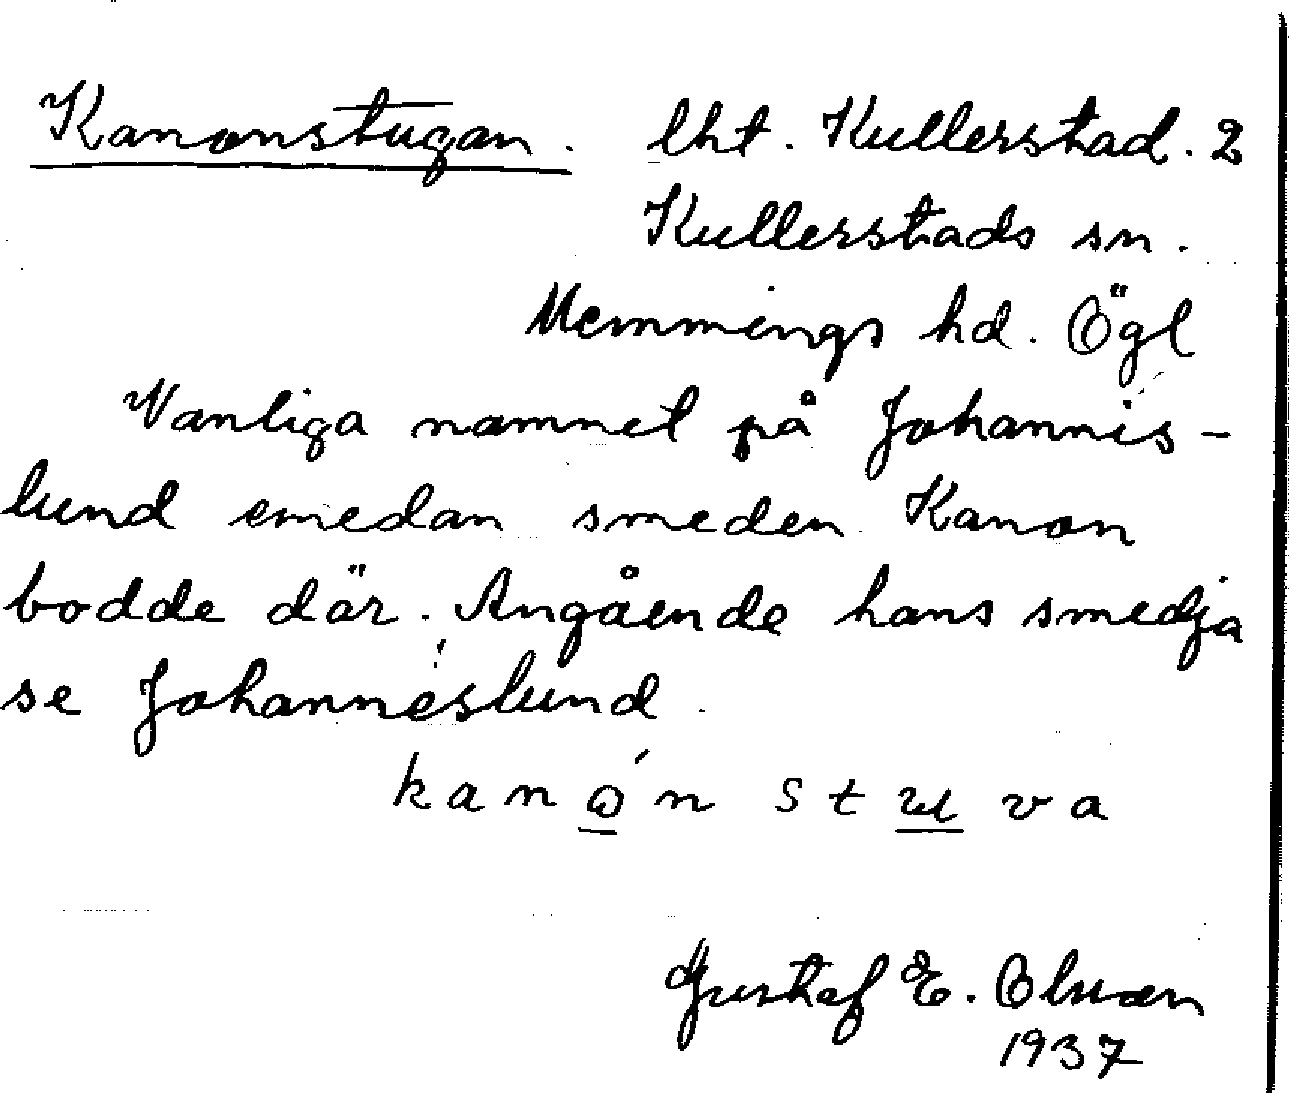 Kanonstugan. lht. Kullerstad. 2
Kullerstads sn.
Memmings hd. Ögl
Vanliga namnet på Johannis-
lund emedan smeden Kanon
bodde där. Angående hans smedja
se Johanneslund.
kanón stuva
Gustaf E. Olsson
1937